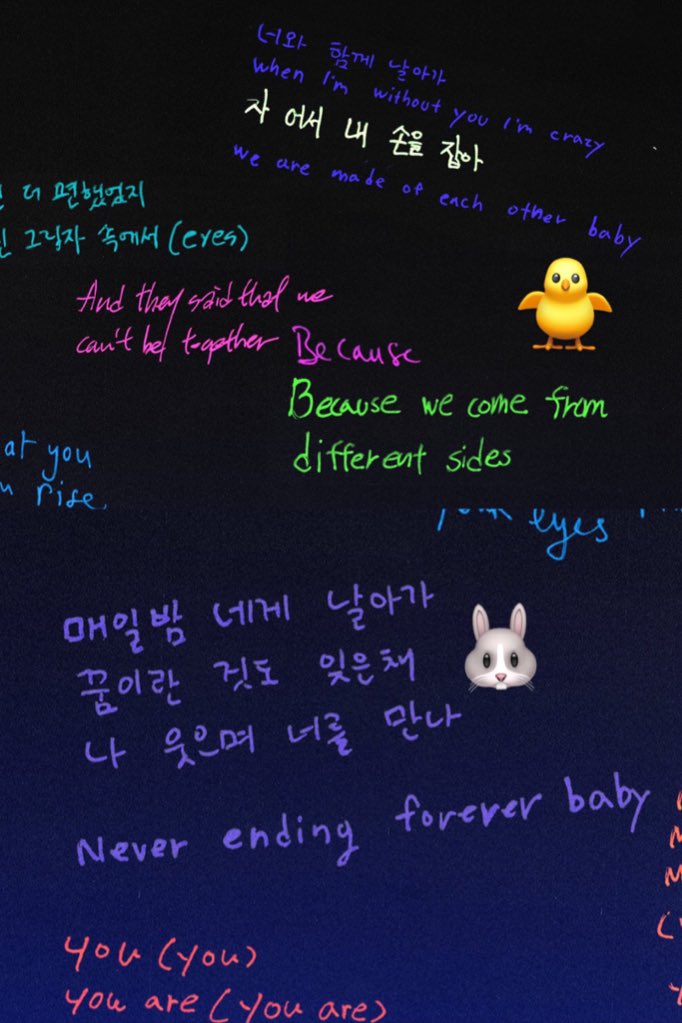 너와 함께 날아가
when I'm without you I'm crazy
자 어서 내 손을 잡아
we are made of each other baby
더 편했었지
그림자 속에서 (eyes)
And they said that we
can't be together Because
Because we come from
different sides
at you
rise.
your eyes
매일밤 네게 날아가
꿈이란 것도 잊은채
나 웃으며 너를 만나
Never ending forever baby
you (you)
you are (you are)